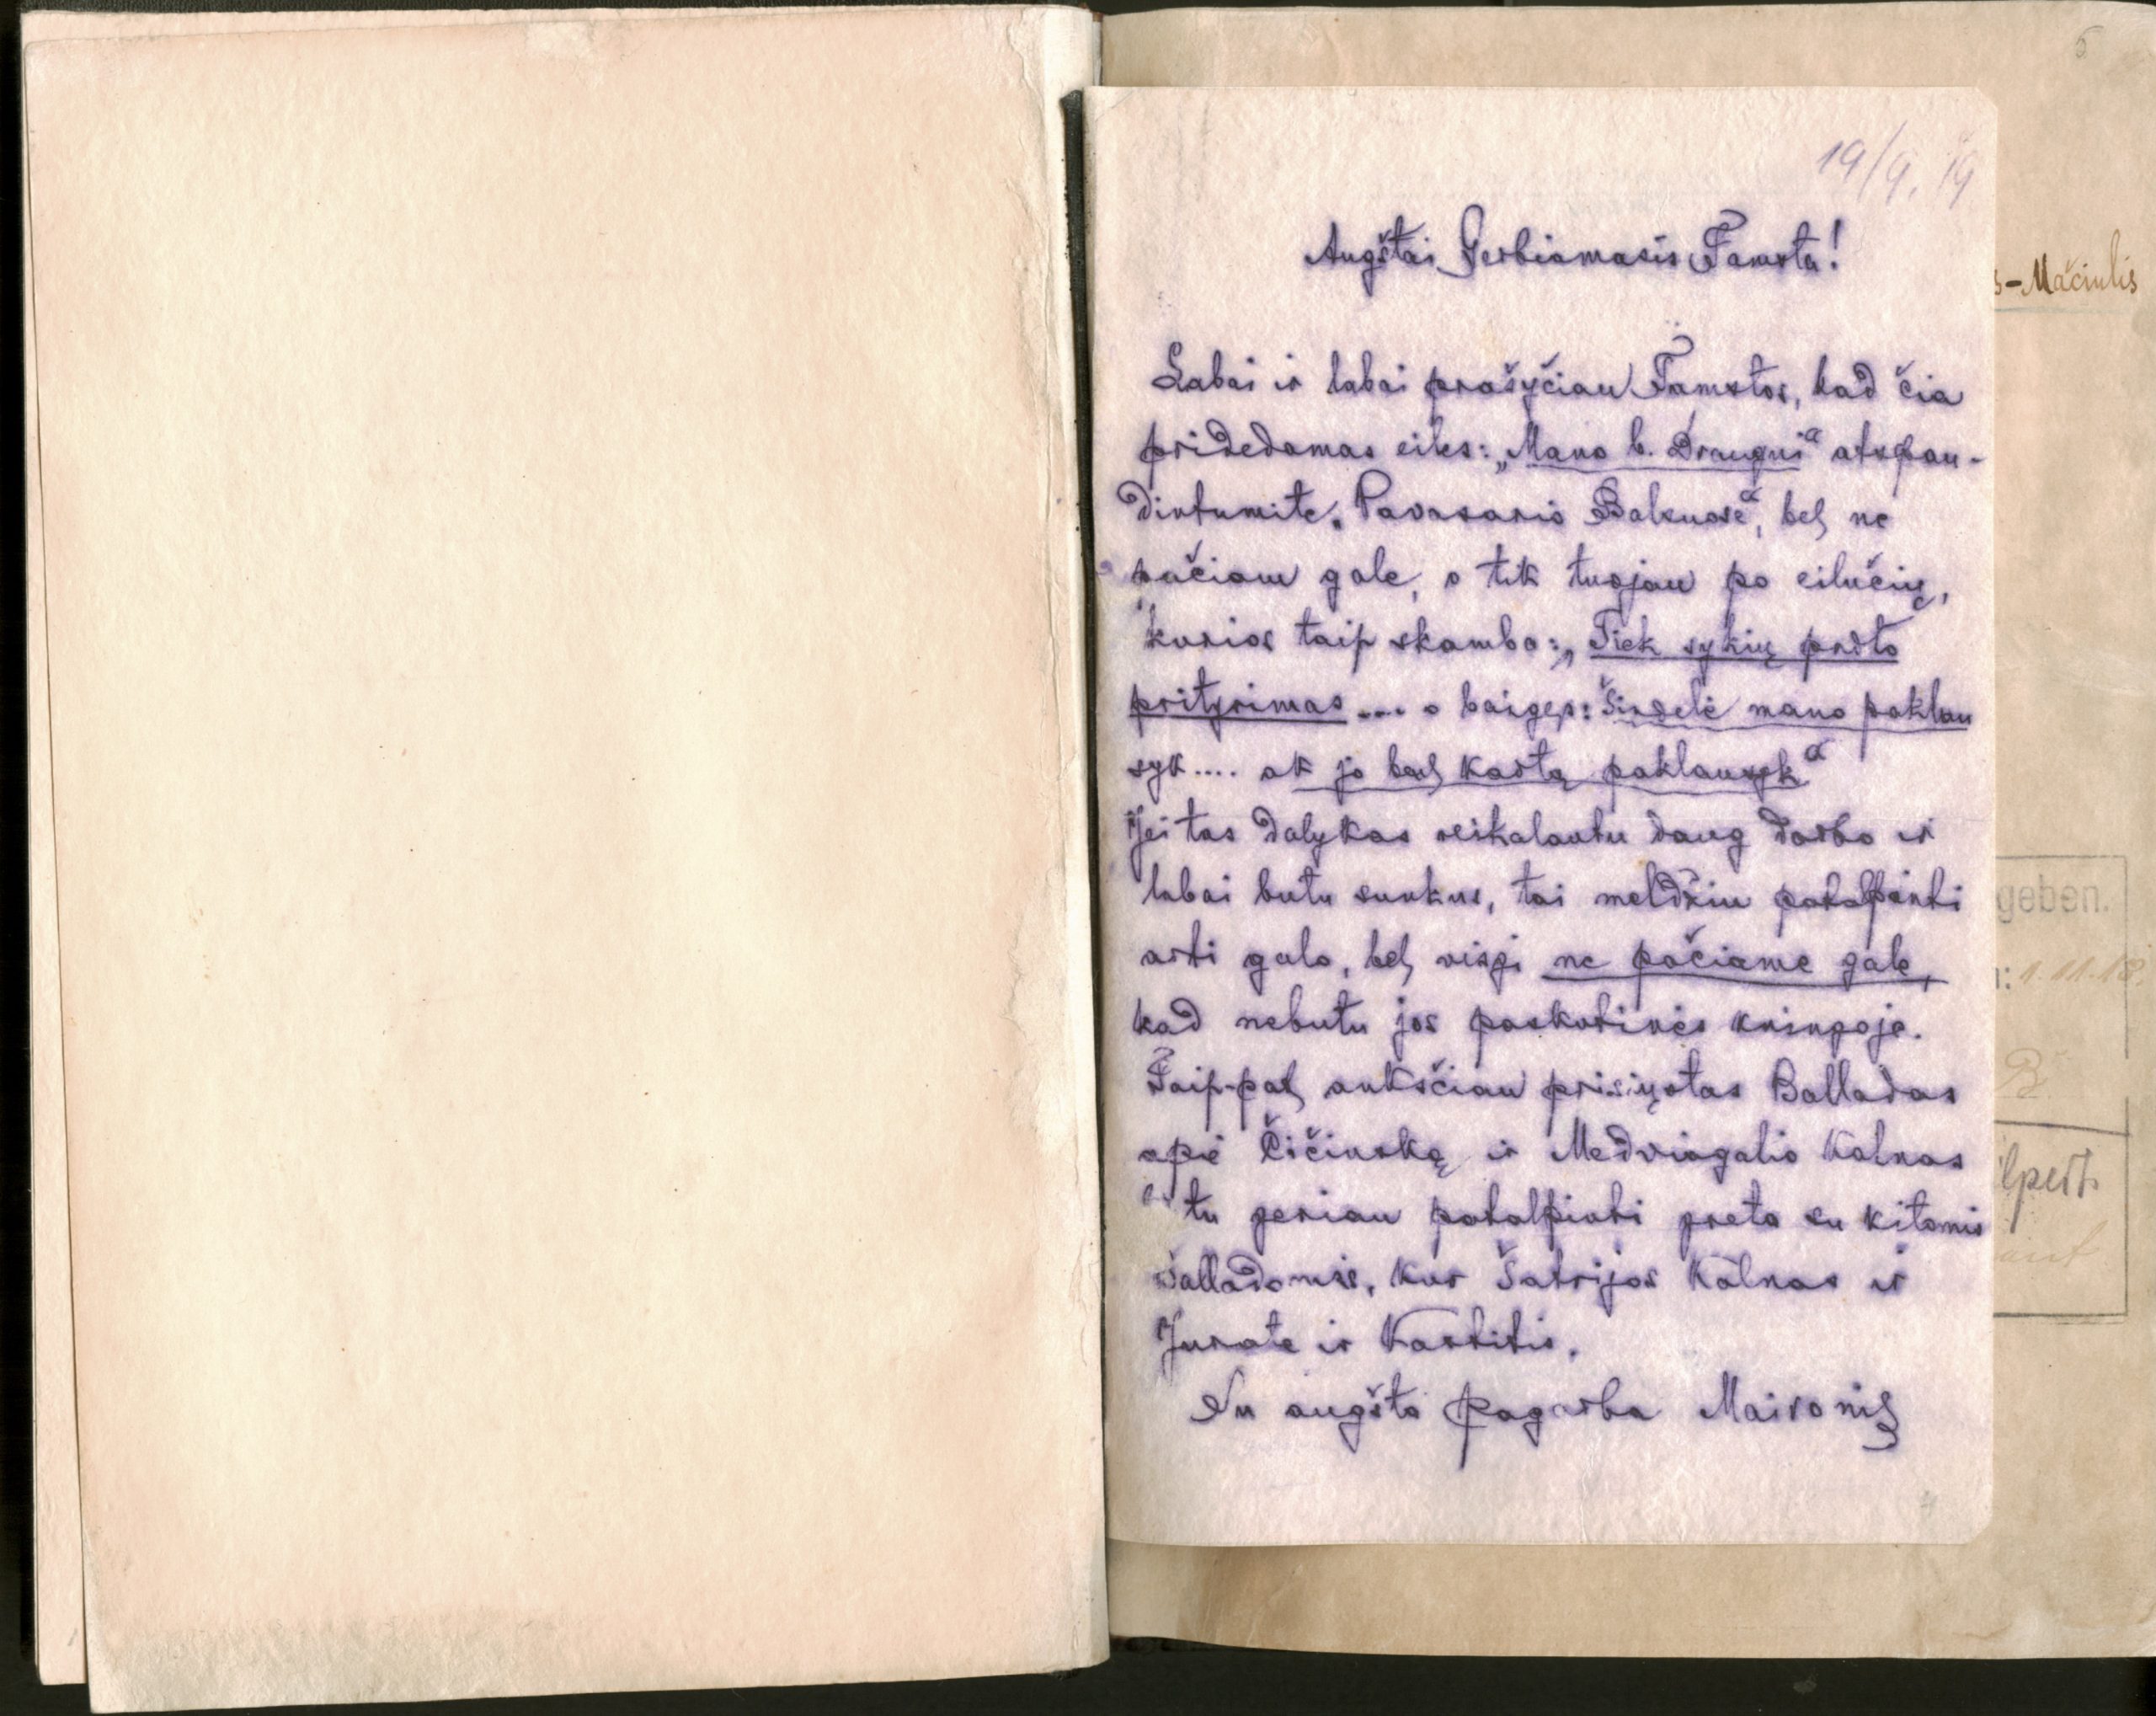 5
19/9. 19
Augštai Gerbiamasis Tamsta!
s-Mačiulis
Labai ir labai prašyčiau Tamstos, kad čia
pridedamas eiles: „Mano b. Draugui“ atspau-
dintumite „Pavasario Balsuose“, bet ne
pačiam gale, o tik tuojau po eilučių,
kurios taip skamba: „Tiek sykių prato
prityrimas .... o baigęs: Širdelė mano paklau
syk.... ak jo bent kartą paklausyk“
Jei tas dalykas reikalautu daug darbo ir
labai butu sunkus, tai meldžiu patalpinti
arti galo, bet visgi ne pačiame gale,
kad nebutu jos paskutinės kningoje.
Taip-pat anksčiau prisiųstas Balladas
apie Čičinską ir Medviagalio Kalnas
butu geriau patalpinti greta su kitomis
Balladomis, kur Šatrijos Kalnas ir
Jurate ir Kastitis.
Su augšta pagarba Maironis
geben.
: 1.11.18.
B.
ilpert.